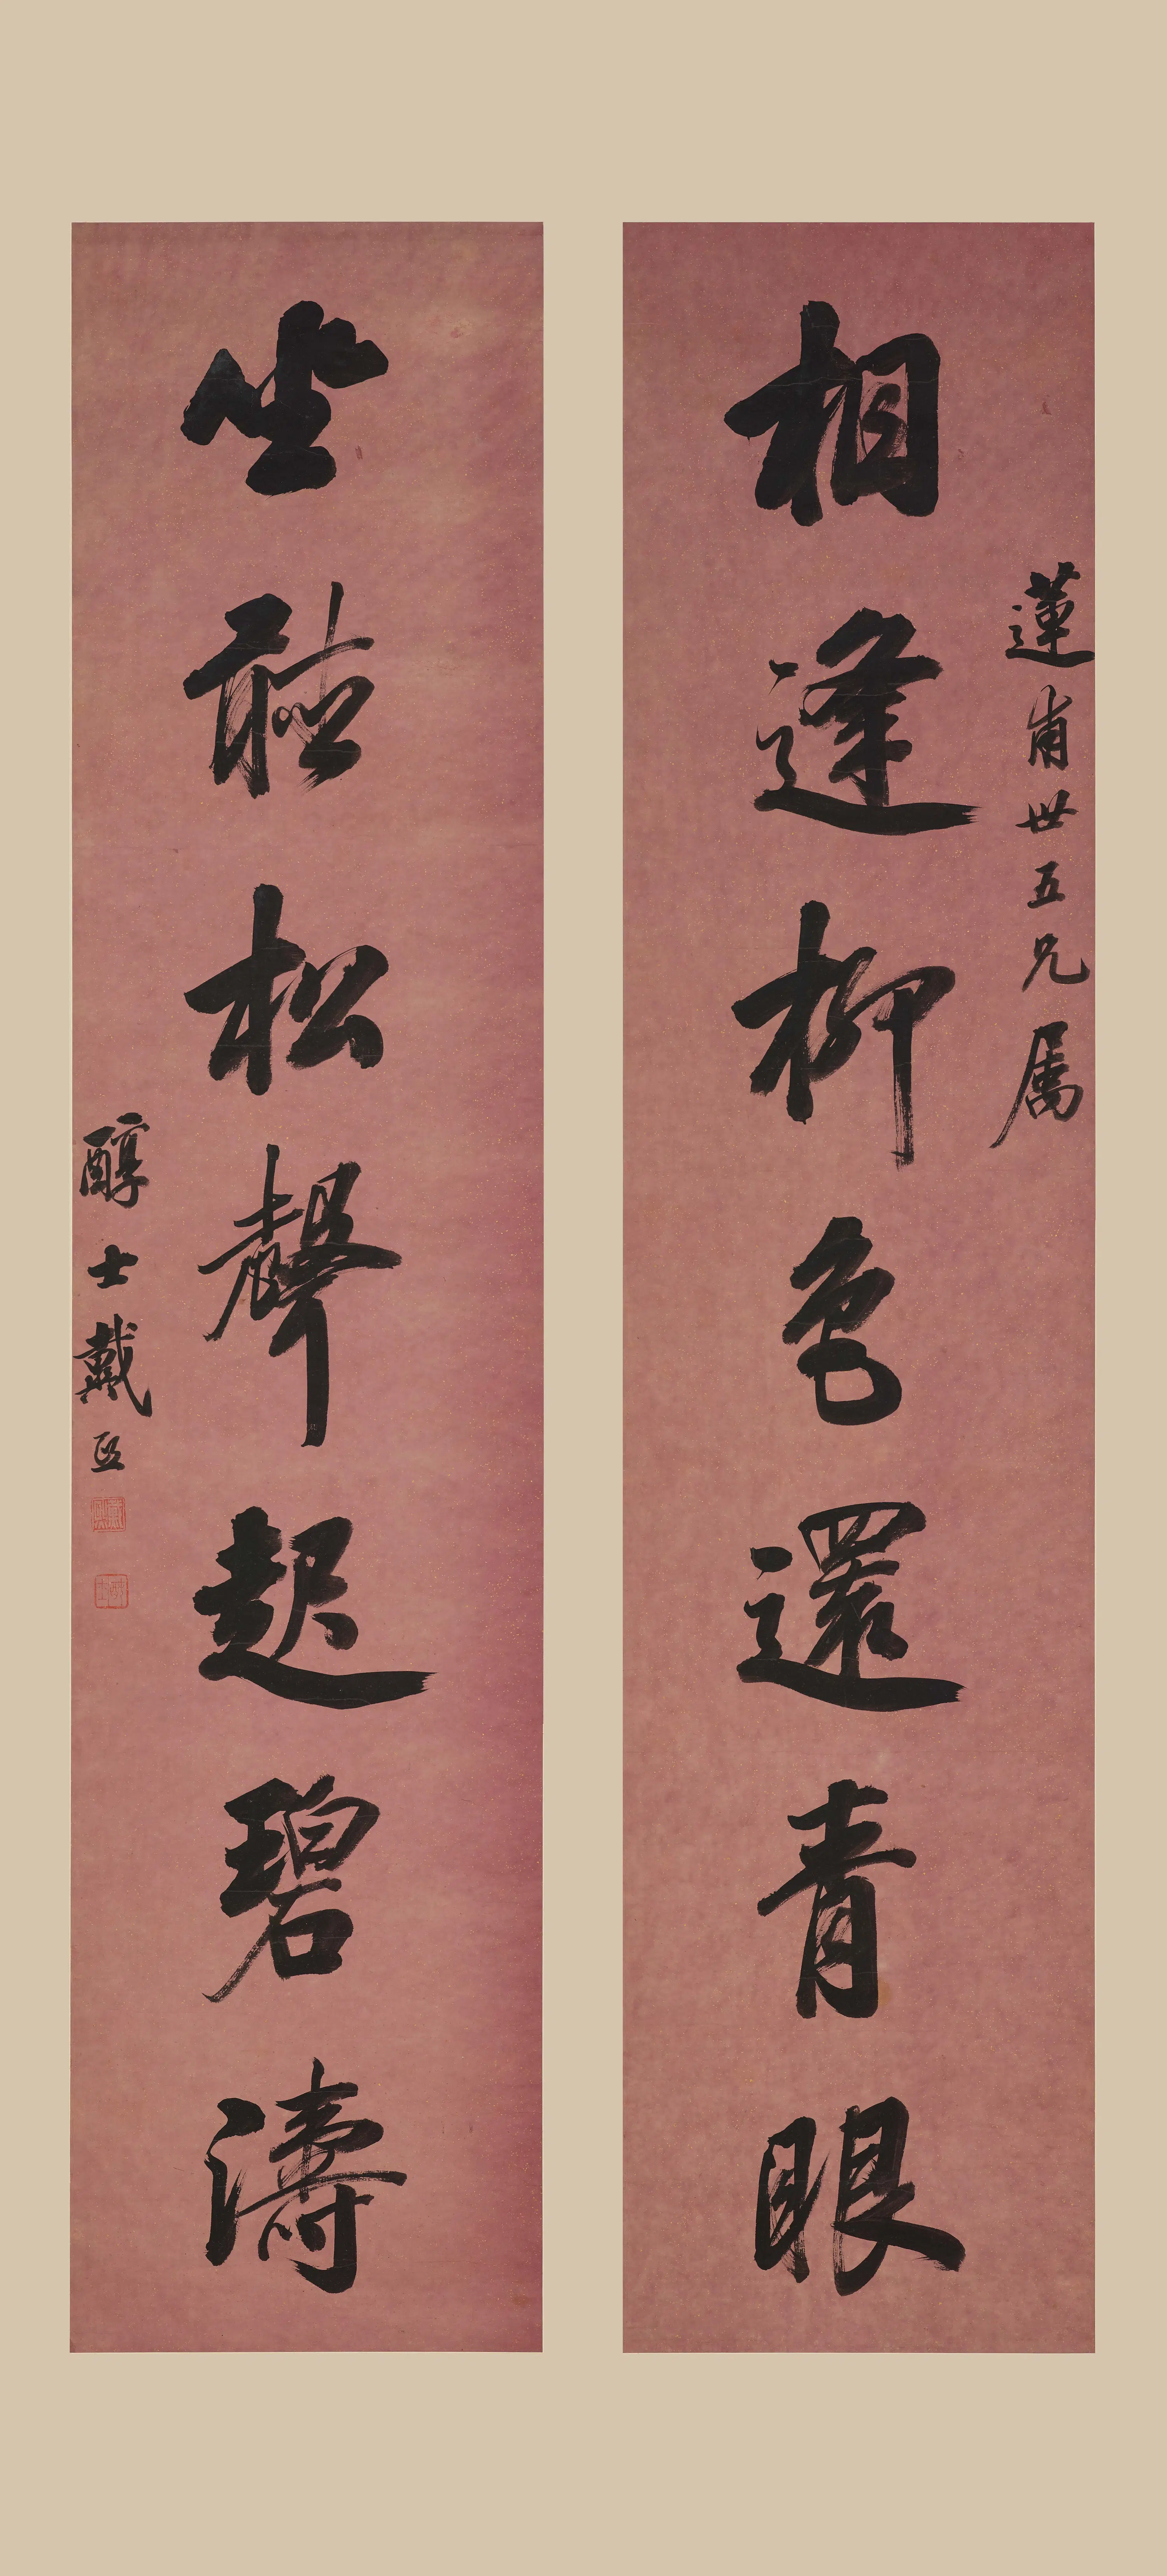 蓮甫世五兄屬
相逢柳色還青眼
坐聽松聲起碧濤
醇士戴熙